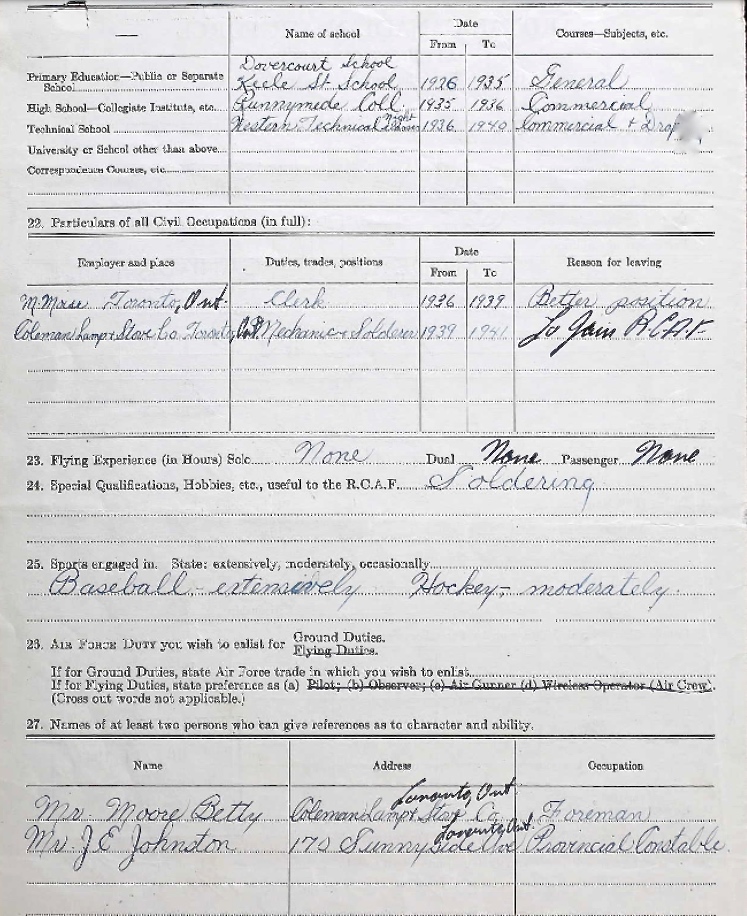 Name of school Date Courses—Subjects, etc.
From To
Dovercourt School
Primary Education—Public or Separate School Keele St School 1926 1935 General
High School—Collegiate Institute, etc. Runnymede Coll 1935 1936 Commercial
Technical School Western Technical Night 1936 1940 Commercial +
University or School other than above
Correspondence Courses, etc.
22. Particulars of all Civil Occupations (in full):
Employer and place Duties, trades, positions Date Reason for leaving
From To
Toronto, Ont. Clerk 1936 1939 Better position
Coleman Lamp & Stove Co Toronto, Ont. Mechanic + Solderer 1939 1941 To Join R.C.A.F.
23. Flying Experience (in Hours) Solo None Dual None Passenger None
24. Special Qualifications, Hobbies, etc., useful to the R.C.A.F. Soldering
25. Sports engaged in. State: extensively, moderately, occasionally
Baseball - extensively Hockey - moderately.
26. AIR FORCE DUTY you wish to enlist for Ground Duties.
Flying Duties.
If for Ground Duties, state Air Force trade in which you wish to enlist
If for Flying Duties, state preference as (a) Pilot; (b) Observer; (c) Air Gunner (d) Wireless Operator (Air Crew).
(Cross out words not applicable.)
27. Names of at least two persons who can give references as to character and ability.
Name Address Occupation
Toronto, Ont
Mr. Moore Betty Coleman Lamp & Stove Co. Foreman
Toronto, Ont.
Mr. J E Johnston Sunnyside Ave Provincial Constable.